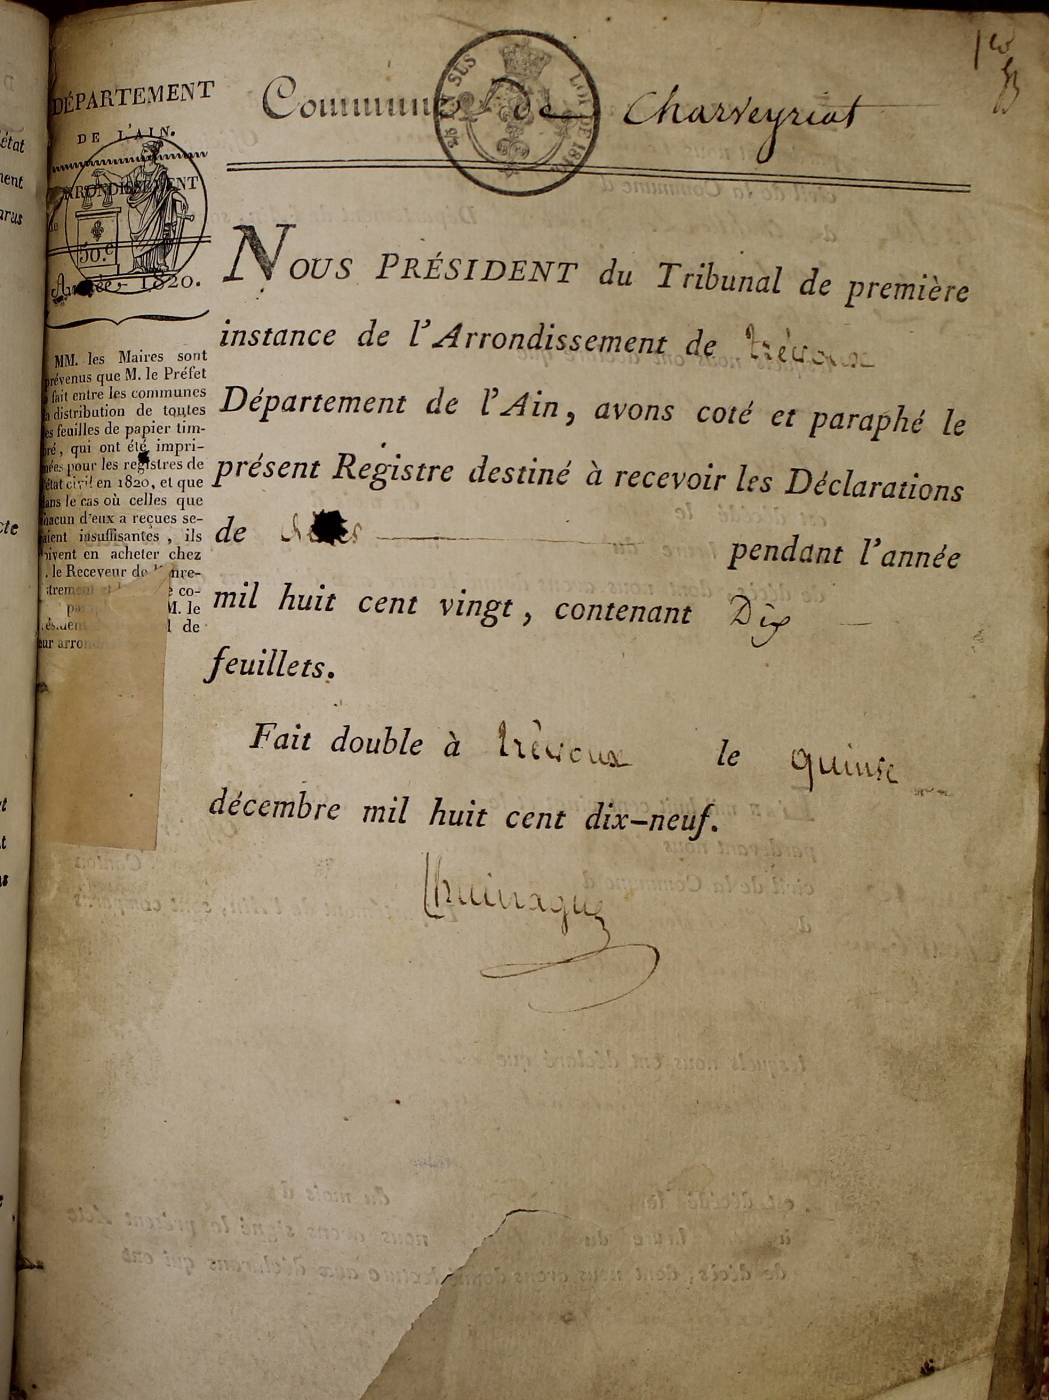 DÉPARTEMENT
DE L'AIN.
ARRONDISSEMENT
de
50.c
Année 1820.
Commune de Charveyriat
EN SUS
LOI DE
1er
NOUS PRÉSIDENT du Tribunal de première
instance de l'Arrondissement de trèvoux
Département de l'Ain, avons coté et paraphé le
présent Registre destiné à recevoir les Déclarations
de pendant l'année
mil huit cent vingt, contenant Dix
feuillets.
Fait double à trèvoux le quinse
décembre mil huit cent dix-neuf.
MM. les Maires sont
prévenus que M. le Préfet
a fait entre les communes
la distribution de toutes
les feuilles de papier tim-
bré, qui ont été impri-
mées pour les registres de
l'état civil en 1820, et que
dans le cas où celles que
chacun d'eux a reçues se-
raient insuffisantes, ils
doivent en acheter chez
. le Receveur de
co-
M. le
l de
eur